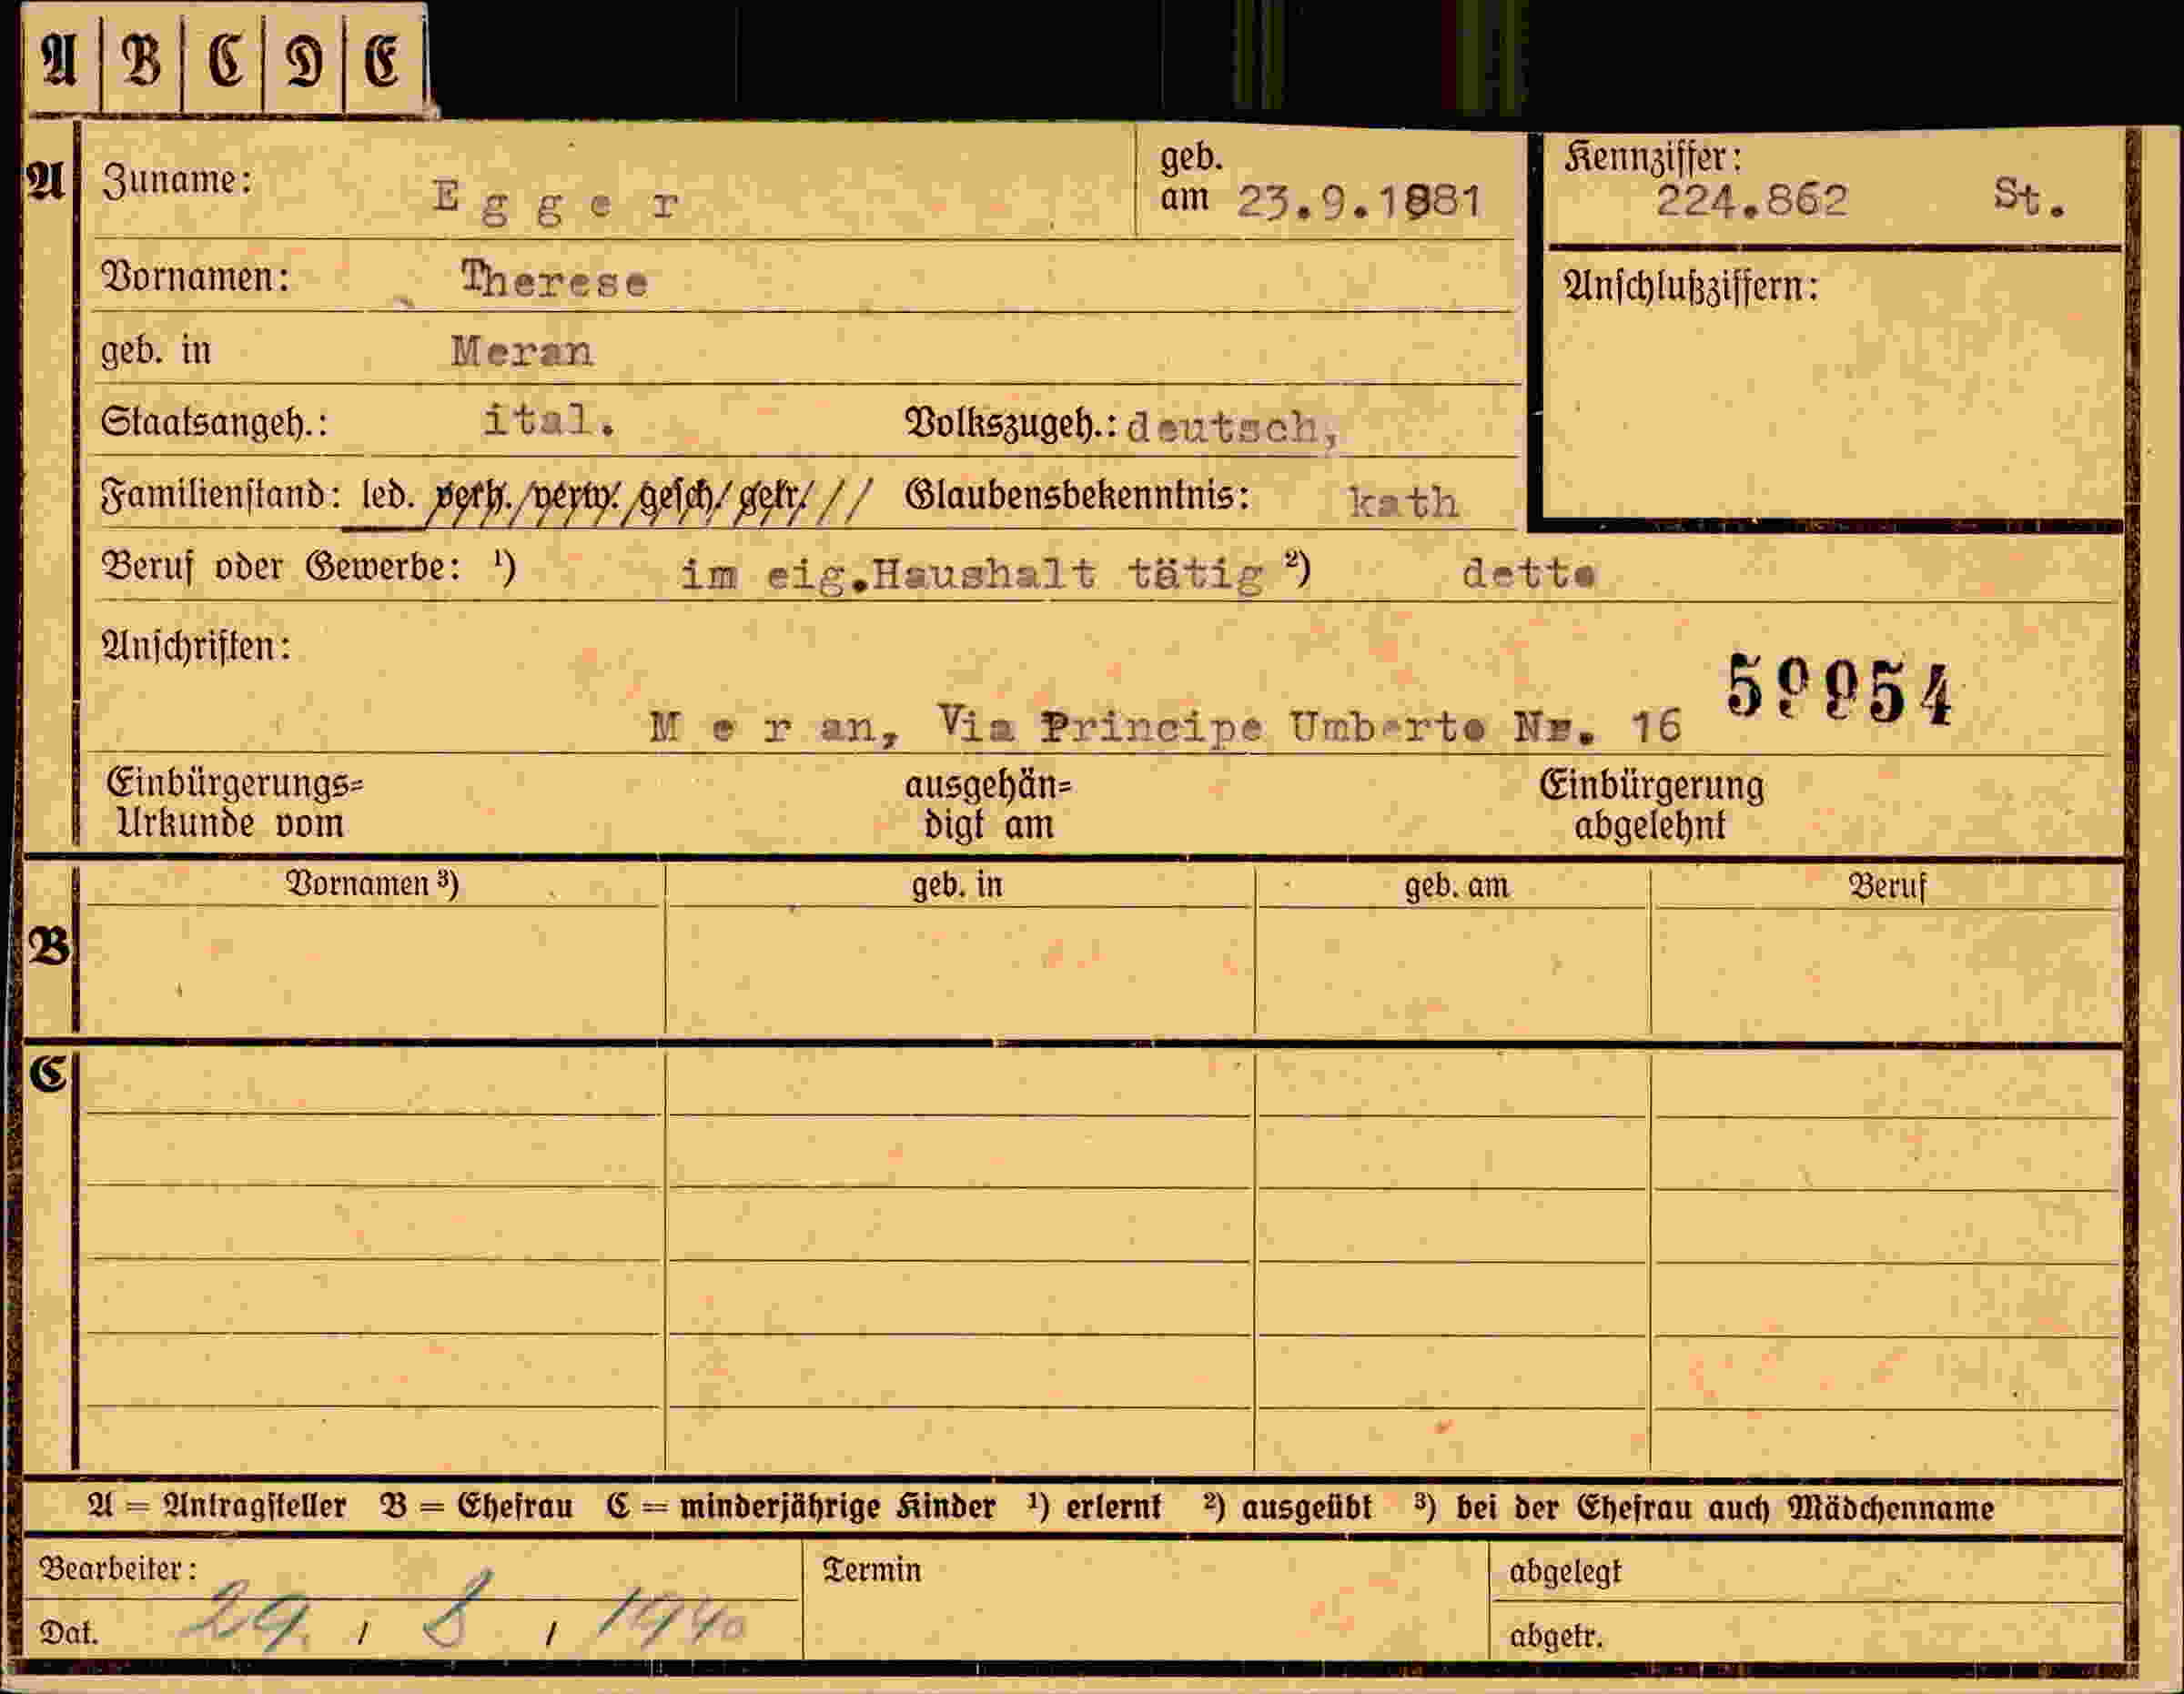 A B C D E
A Zuname: Egger geb. am 23.9.1881 Kennziffer: 224.862 St.
Vornamen: Therese Anschlußziffern:
geb. in Meran
Staatsangeh.: ital. Volkszugeh.: deutsch,
Familienstand: led. verh./verw./gesch/getr/// Glaubensbekenntnis: kath
Beruf oder Gewerbe: ¹) im eig.Haushalt tätig ²) detto
Anschriften:
M e r an, Via Principe Umberto Nr. 16 59954
Einbürgerungs= ausgehän= Einbürgerung
Urkunde vom digt am abgelehnt
Vornamen ³) geb. in geb. am Beruf
B
C
A = Antragsteller B = Ehefrau C = minderjährige Kinder ¹) erlernt ²) ausgeübt ³) bei der Ehefrau auch Mädchenname
Bearbeiter: Termin abgelegt
Dat. 29. / 8 / 1940 abgetr.